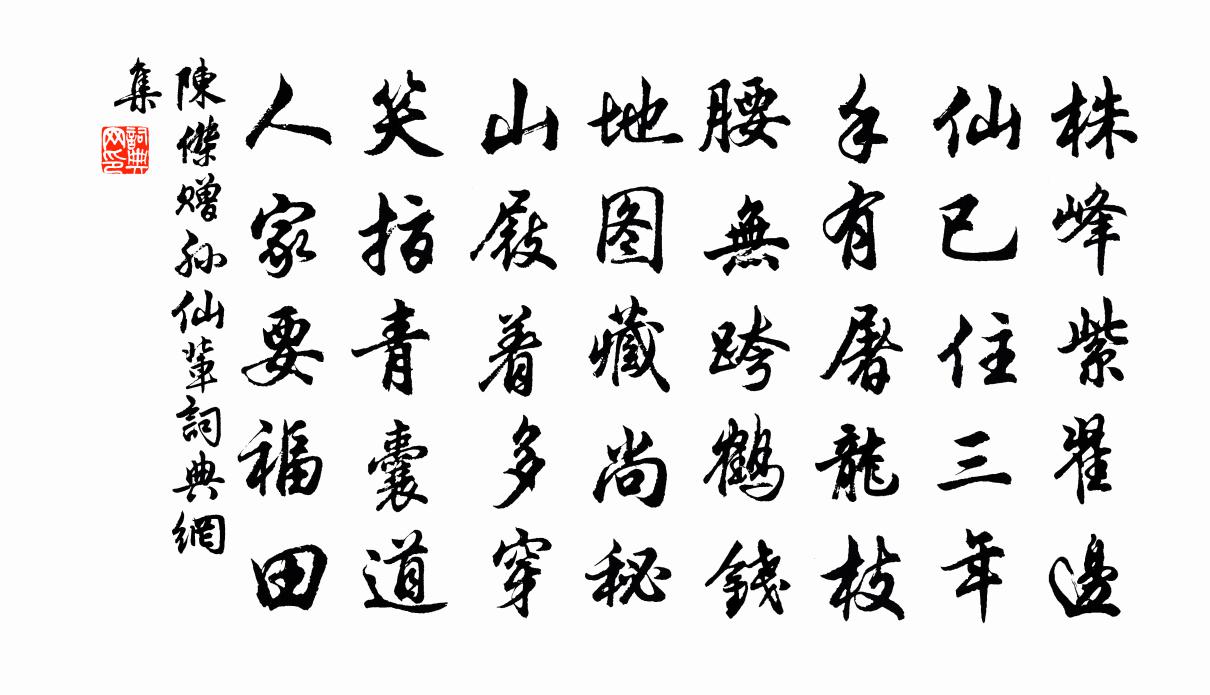 株峰紫翟邊
仙已住三年
手有屠龍枝
腰無跨鶴錢
地图藏尚秘
山屐着多穿
笑指青囊道
人家要福田
陳傑贈孫仙輩詞典網
集
詞典网印